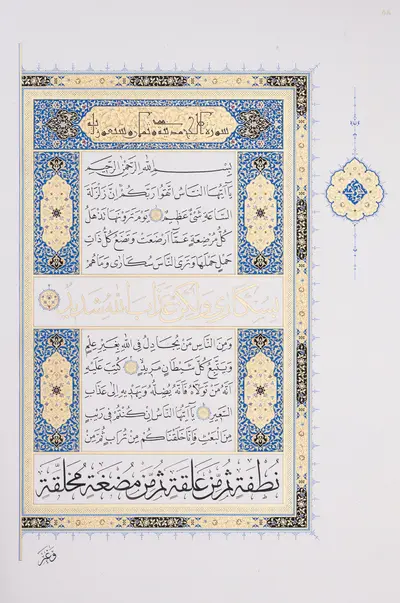 سورة الحج مدنية وثمان وسبعون آية
بِسْمِ اللهِ الرَّحْمٰنِ الرَّحِيمِ
يَا أَيُّهَا النَّاسُ اتَّقُوا رَبَّكُمْ إِنَّ زَلْزَلَةَ
السَّاعَةِ شَيْءٌ عَظِيمٌ يَوْمَ تَرَوْنَهَا تَذْهَلُ
كُلُّ مُرْضِعَةٍ عَمَّا أَرْضَعَتْ وَتَضَعُ كُلُّ ذَاتِ
حَمْلٍ حَمْلَهَا وَتَرَى النَّاسَ سُكَارَى وَمَا هُمْ
بِسُكَارَى وَلَكِنَّ عَذَابَ اللهِ شَدِيدٌ
وَمِنَ النَّاسِ مَنْ يُجَادِلُ فِي اللهِ بِغَيْرِ عِلْمٍ
وَيَتَّبِعُ كُلَّ شَيْطَانٍ مَرِيدٍ كُتِبَ عَلَيْهِ
أَنَّهُ مَنْ تَوَلَّاهُ فَأَنَّهُ يُضِلُّهُ وَيَهْدِيهِ إِلَى عَذَابِ
السَّعِيرِ يَا أَيُّهَا النَّاسُ إِنْ كُنْتُمْ فِي رَيْبٍ
مِنَ الْبَعْثِ فَإِنَّا خَلَقْنَاكُمْ مِنْ تُرَابٍ ثُمَّ مِنْ
نُطْفَةٍ ثُمَّ مِنْ عَلَقَةٍ ثُمَّ مِنْ مُضْغَةٍ مُخَلَّقَةٍ
وَغَيْرِ